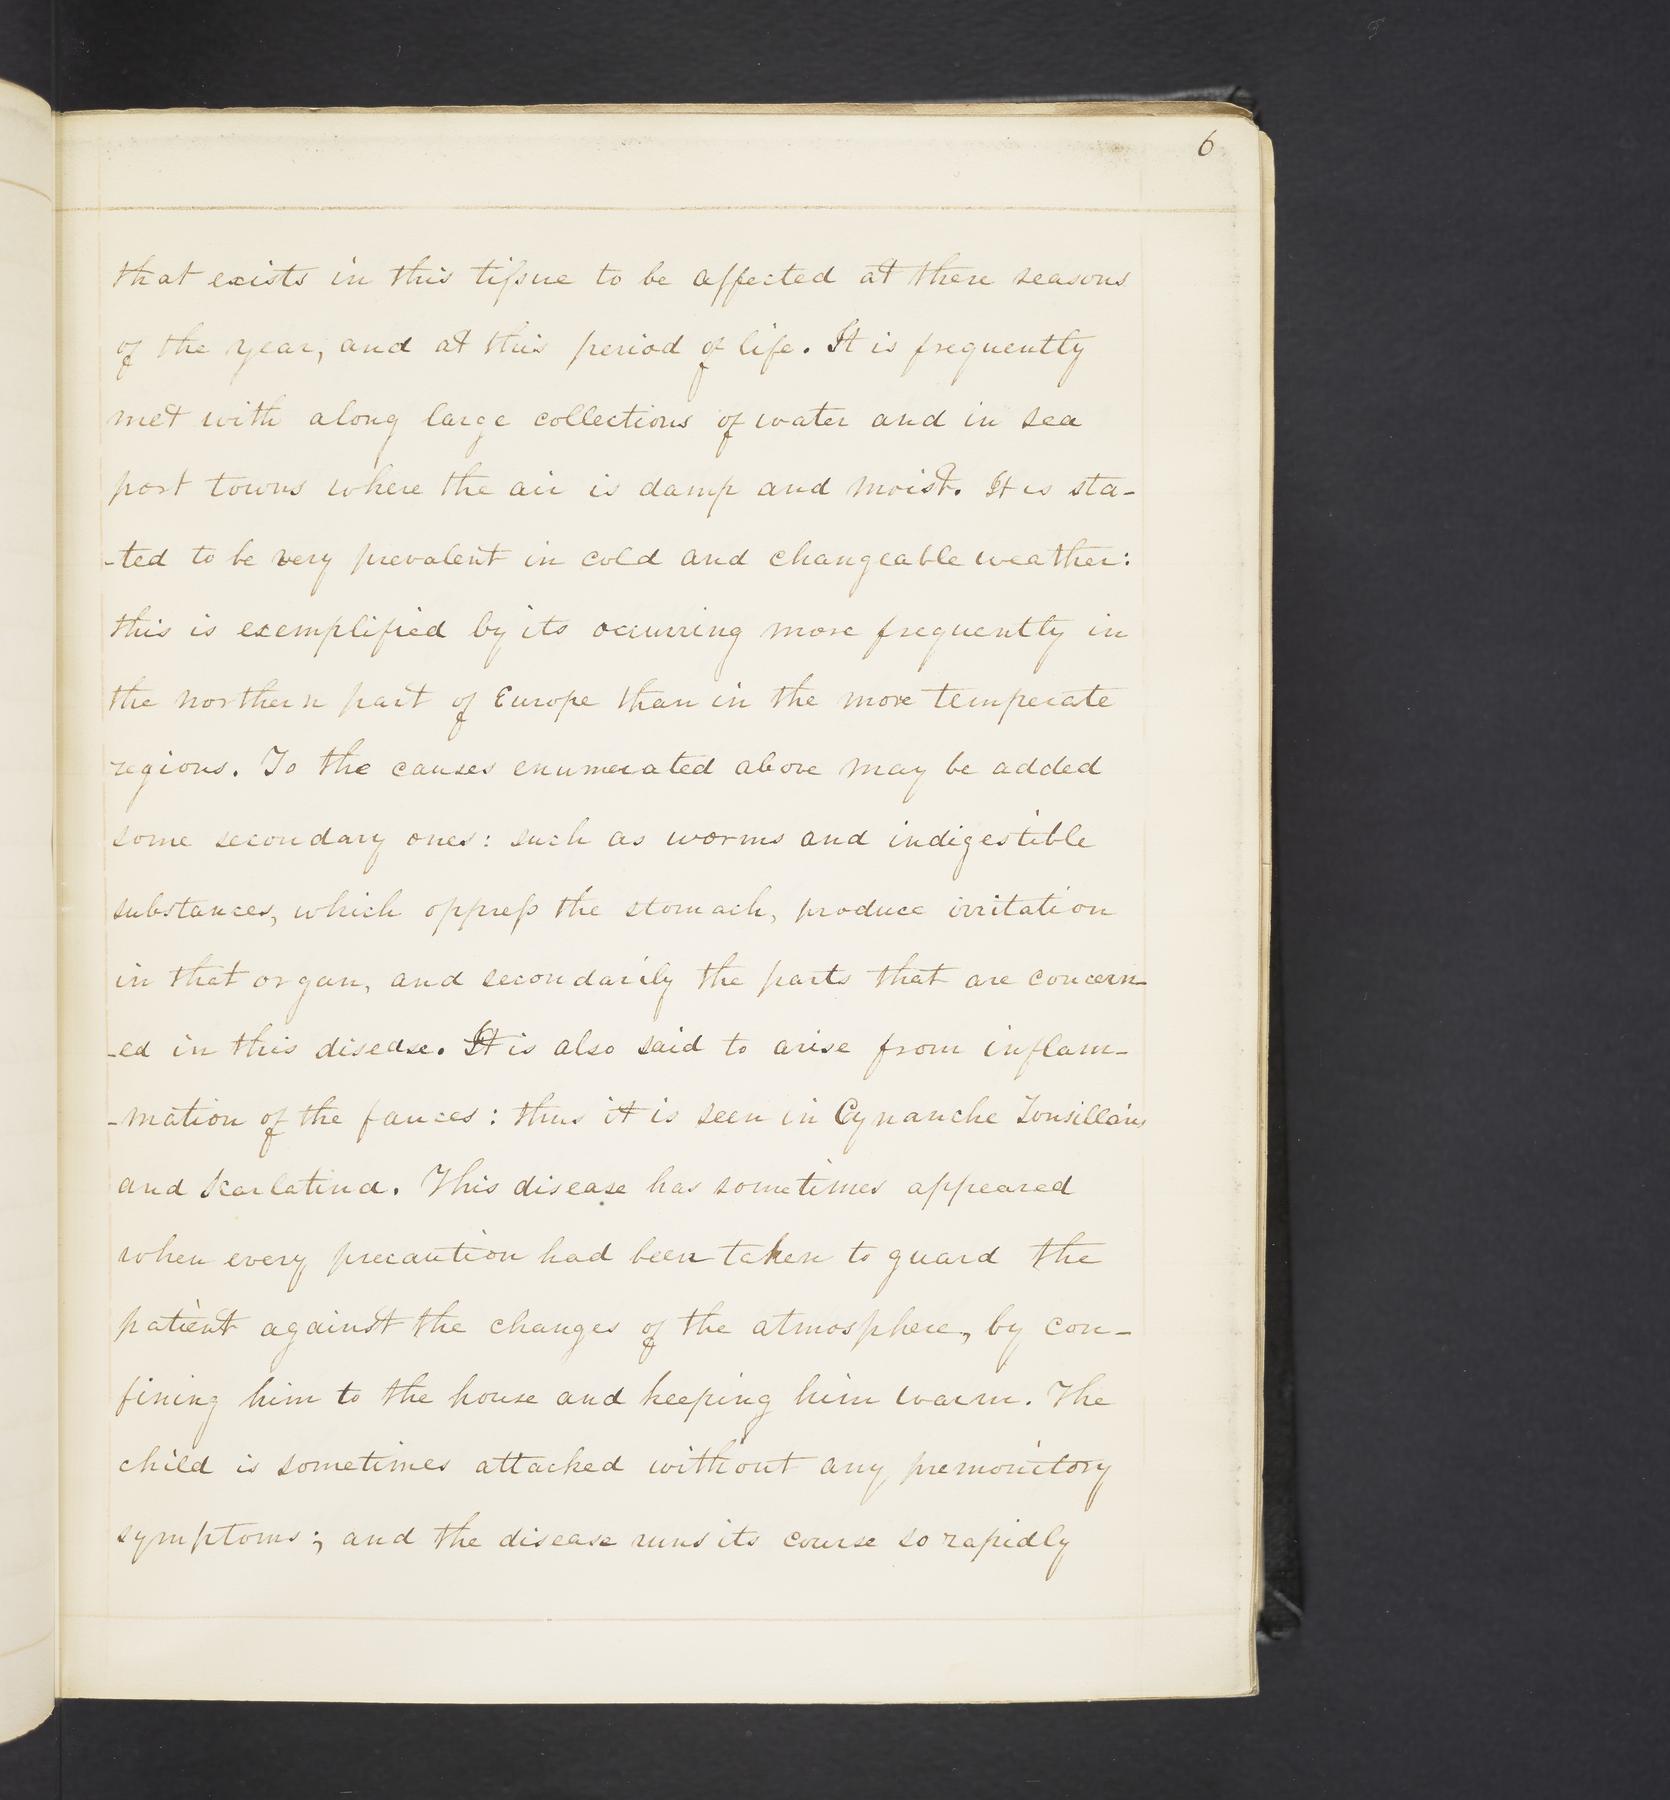 6
that exists in this tissue to be affected at these seasons
of the year, and at this period of life. It is frequently
met with along large collections of water and in sea
port towns where the air is damp and moist. It is sta-
-ted to be very prevalent in cold and changeable weather:
this is exemplified by its occurring more frequently in
the northern part of Europe than in the more temperate
regions. To the causes enumerated above may be added
some secondary ones: such as worms and indigestible
substances, which oppress the stomach, produce irritation
in that organ, and secondarily the parts that are concern-
-ed in this disease. It is also said to arise from inflam-
-mation of the fauces: thus it is seen in Cynanche Tonsillaris
and Scarlatina. This disease has sometimes appeared
when every precaution had been taken to guard the
patient against the changes of the atmosphere, by con-
fining him to the house and keeping him warm. The
child is sometimes attacked without any premonitory
symptoms; and the disease runs its course so rapidly